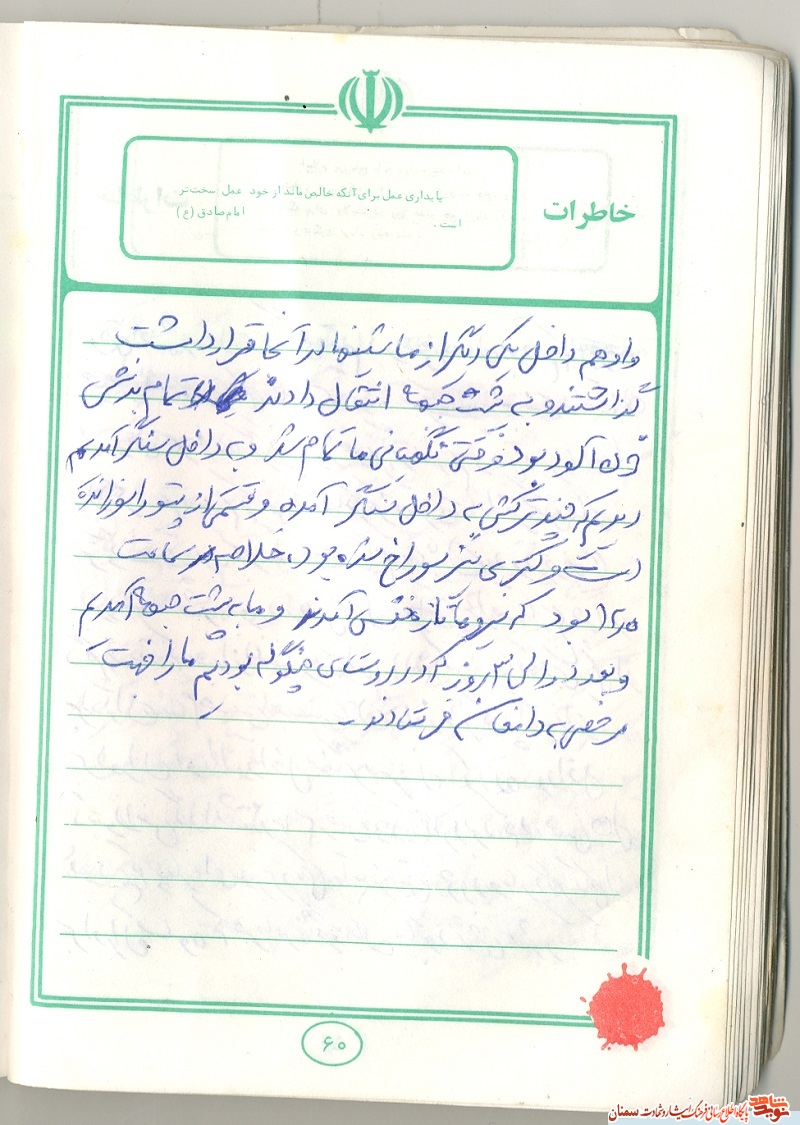 خاطرات
پایداری عمل برای آنکه خالص ماند از خود عمل سخت‌تر
است .
امام صادق (ع)
واو هم داخل یکی دیگر از ماشینها در آنجا قرار داشت
گذاشتند و به پشت جبهه انتقال دادند تمام بدنش
خون آلود بود وقتی نگهبانی ما تمام شد و به داخل سنگر آمدیم
دیدیم که چند ترکش به داخل سنگر آمده و قسمتی از پتو را سوزانده
است و کتری نیز سوراخ شده بود خلاصه در ساعت
بود که نیروهای تازه نفس آمدند و ما به پشت جبهه آمدیم
و بعد از ۳ روز که در روستای بودیم ما را جهت
مرخصی به دامغان فرستادند .
۶۰
نوید شاهد
پایگاه اطلاع رسانی فرهنگ ایثار و شهادت سمنان